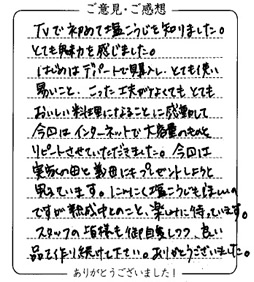 ご意見・ご感想
TVで初めて塩こうじを知りました。
とても魅力を感じました。
はじめはデパートで購入し、とても使い
易いこと、こった工夫がなくても とても
おいしい料理になることに感動して
今回はインターネットで大容量のものを
リピートさせていただきました。今回は
実家の母と義母にもプレゼントしようと
思っています。にんにく塩こうじもほしいの
ですが熟成中とのこと、楽しみに待っています。
スタッフの皆様も御自愛しつつ、良い
品を作り続けて下さい。ありがとうございました。
ありがとうございました！